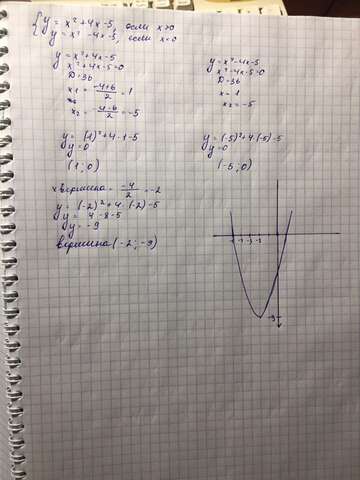 y = x² + 4x - 5, если x ≥ 0
y = x² - 4x - 5, если x < 0
y = x² + 4x - 5
x² + 4x - 5 = 0
D = 36
x₁ = (-4+6)/2 = 1
x₂ = (-4-6)/2 = -5
y = x² - 4x - 5
x² - 4x - 5 = 0
D = 36
x = 1
x₂ = -5
y = (1)² + 4·1 - 5
y = 0
(1; 0)
y = (-5)² + 4·(-5) - 5
y = 0
(-5; 0)
x вершина = -4/2 = -2
y = (-2)² + 4·(-2) - 5
y = 4 - 8 - 5
y = -9
вершина (-2; -9)
-9